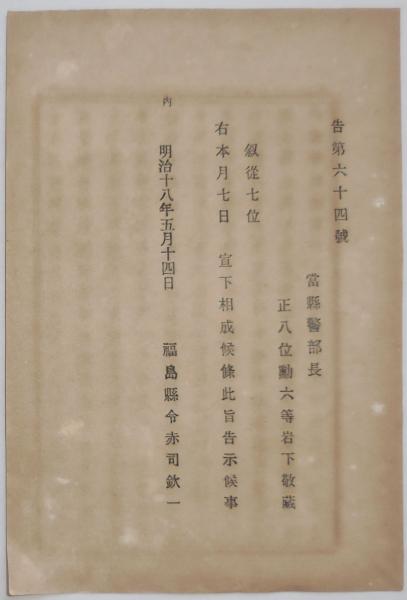 告第六十四號
當縣警部長
正八位勳六等岩下敬藏
叙從七位
右本月七日　宣下相成候條此旨告示候事
内
明治十八年五月十四日　福島縣令赤司欽一